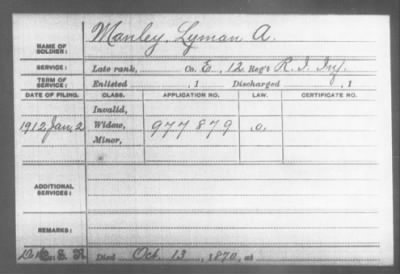 NAME OF SOLDIER: Manley, Lyman A.
SERVICE: Late rank, Co. E, 12 Reg't R. I. Inf.
TERM OF SERVICE: Enlisted , 1 Discharged , 1
DATE OF FILING. CLASS. APPLICATION NO. LAW. CERTIFICATE NO.
Invalid,
1912, Jan. 2 Widow, 977879 .o.
Minor,
ADDITIONAL SERVICES:
REMARKS:
Died Oct. 13, 1870, at